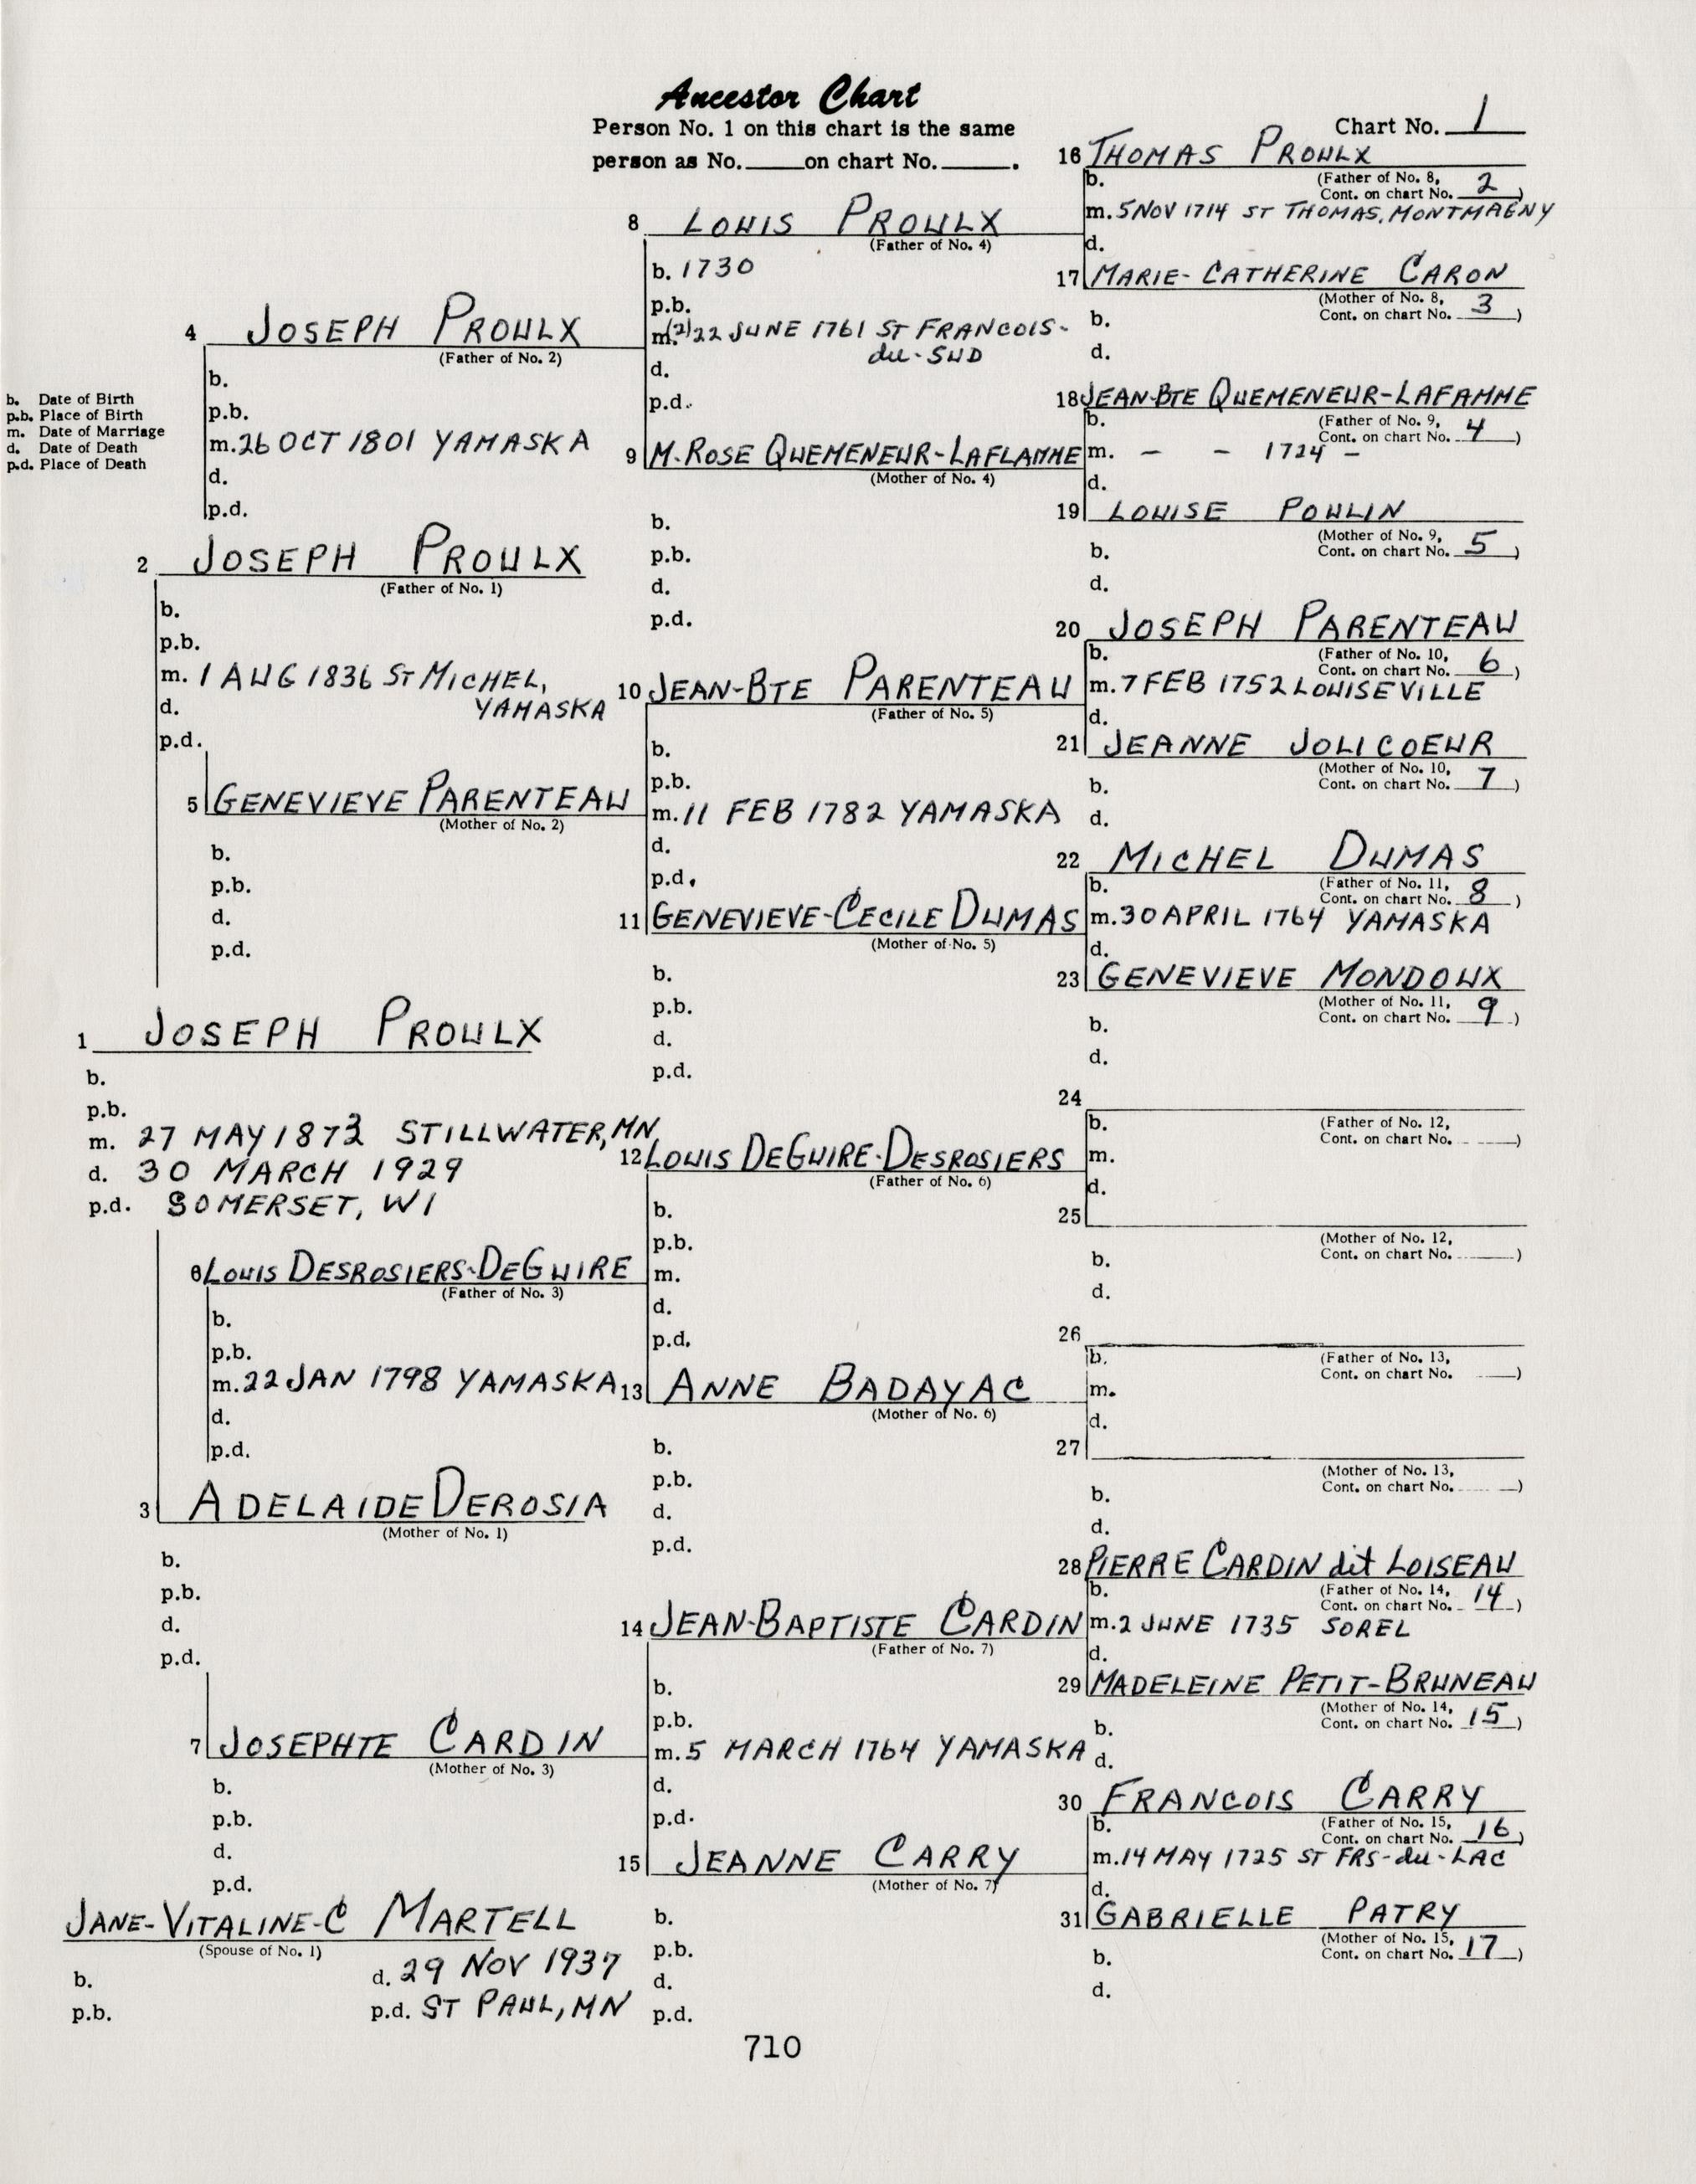 Ancestor Chart
Person No. 1 on this chart is the same
person as No. on chart No. .
Chart No. 1
b. Date of Birth
p.b. Place of Birth
m. Date of Marriage
d. Date of Death
p.d. Place of Death
1 JOSEPH PROULX
b.
p.b.
m. 27 MAY 1873 STILLWATER, MN
d. 30 MARCH 1929
p.d. SOMERSET, WI
JANE-VITALINE-C MARTELL
(Spouse of No. 1)
b.
p.b.
d. 29 NOV 1937
p.d. ST PAUL, MN
2 JOSEPH PROULX
(Father of No. 1)
b.
p.b.
m. 1 AUG 1836 ST MICHEL,
YAMASKA
d.
p.d.
3 ADELAIDE DEROSIA
(Mother of No. 1)
b.
p.b.
d.
p.d.
4 JOSEPH PROULX
(Father of No. 2)
b.
p.b.
m. 26 OCT 1801 YAMASKA
d.
p.d.
5 GENEVIEVE PARENTEAU
(Mother of No. 2)
b.
p.b.
d.
p.d.
6 LOUIS DESROSIERS-DEGUIRE
(Father of No. 3)
b.
p.b.
m. 22 JAN 1798 YAMASKA
d.
p.d.
7 JOSEPHTE CARDIN
(Mother of No. 3)
b.
p.b.
d.
p.d.
8 LOUIS PROULX
(Father of No. 4)
b. 1730
p.b.
m. (2) 22 JUNE 1761 ST FRANCOIS-
du-SUD
d.
p.d.
9 M-ROSE QUEMENEUR-LAFLAMME
(Mother of No. 4)
b.
p.b.
d.
p.d.
10 JEAN-BTE PARENTEAU
(Father of No. 5)
b.
p.b.
m. 11 FEB 1782 YAMASKA
d.
p.d.
11 GENEVIEVE-CECILE DUMAS
(Mother of No. 5)
b.
p.b.
d.
p.d.
12 LOUIS DEGUIRE-DESROSIERS
(Father of No. 6)
b.
p.b.
m.
d.
p.d.
13 ANNE BADAYAC
(Mother of No. 6)
b.
p.b.
d.
p.d.
14 JEAN-BAPTISTE CARDIN
(Father of No. 7)
b.
p.b.
m. 5 MARCH 1764 YAMASKA
d.
p.d.
15 JEANNE CARRY
(Mother of No. 7)
b.
p.b.
d.
p.d.
16 THOMAS PROULX
b. (Father of No. 8,
Cont. on chart No. 2)
m. 5 NOV 1714 ST THOMAS, MONTMAGNY
d.
17 MARIE-CATHERINE CARON
(Mother of No. 8,
Cont. on chart No. 3)
b.
d.
18 JEAN-BTE QUEMENEUR-LAFAMME
b. (Father of No. 9,
Cont. on chart No. 4)
m. - - 1724 -
d.
19 LOUISE POULIN
(Mother of No. 9,
Cont. on chart No. 5)
b.
d.
20 JOSEPH PARENTEAU
b. (Father of No. 10,
Cont. on chart No. 6)
m. 7 FEB 1752 LOUISEVILLE
d.
21 JEANNE JOLICOEUR
(Mother of No. 10,
Cont. on chart No. 7)
b.
d.
22 MICHEL DUMAS
b. (Father of No. 11,
Cont. on chart No. 8)
m. 30 APRIL 1764 YAMASKA
d.
23 GENEVIEVE MONDOUX
(Mother of No. 11,
Cont. on chart No. 9)
b.
d.
24
b. (Father of No. 12,
Cont. on chart No. )
m.
d.
25
(Mother of No. 12,
Cont. on chart No. )
b.
d.
26
b. (Father of No. 13,
Cont. on chart No. )
m.
d.
27
(Mother of No. 13,
Cont. on chart No. )
b.
d.
28 PIERRE CARDIN dit LOISEAU
b. (Father of No. 14,
Cont. on chart No. 14)
m. 2 JUNE 1735 SOREL
d.
29 MADELEINE PETIT-BRUNEAU
(Mother of No. 14,
Cont. on chart No. 15)
b.
d.
30 FRANCOIS CARRY
b. (Father of No. 15,
Cont. on chart No. 16)
m. 14 MAY 1725 ST FRS-du-LAC
d.
31 GABRIELLE PATRY
(Mother of No. 15,
Cont. on chart No. 17)
b.
d.
710